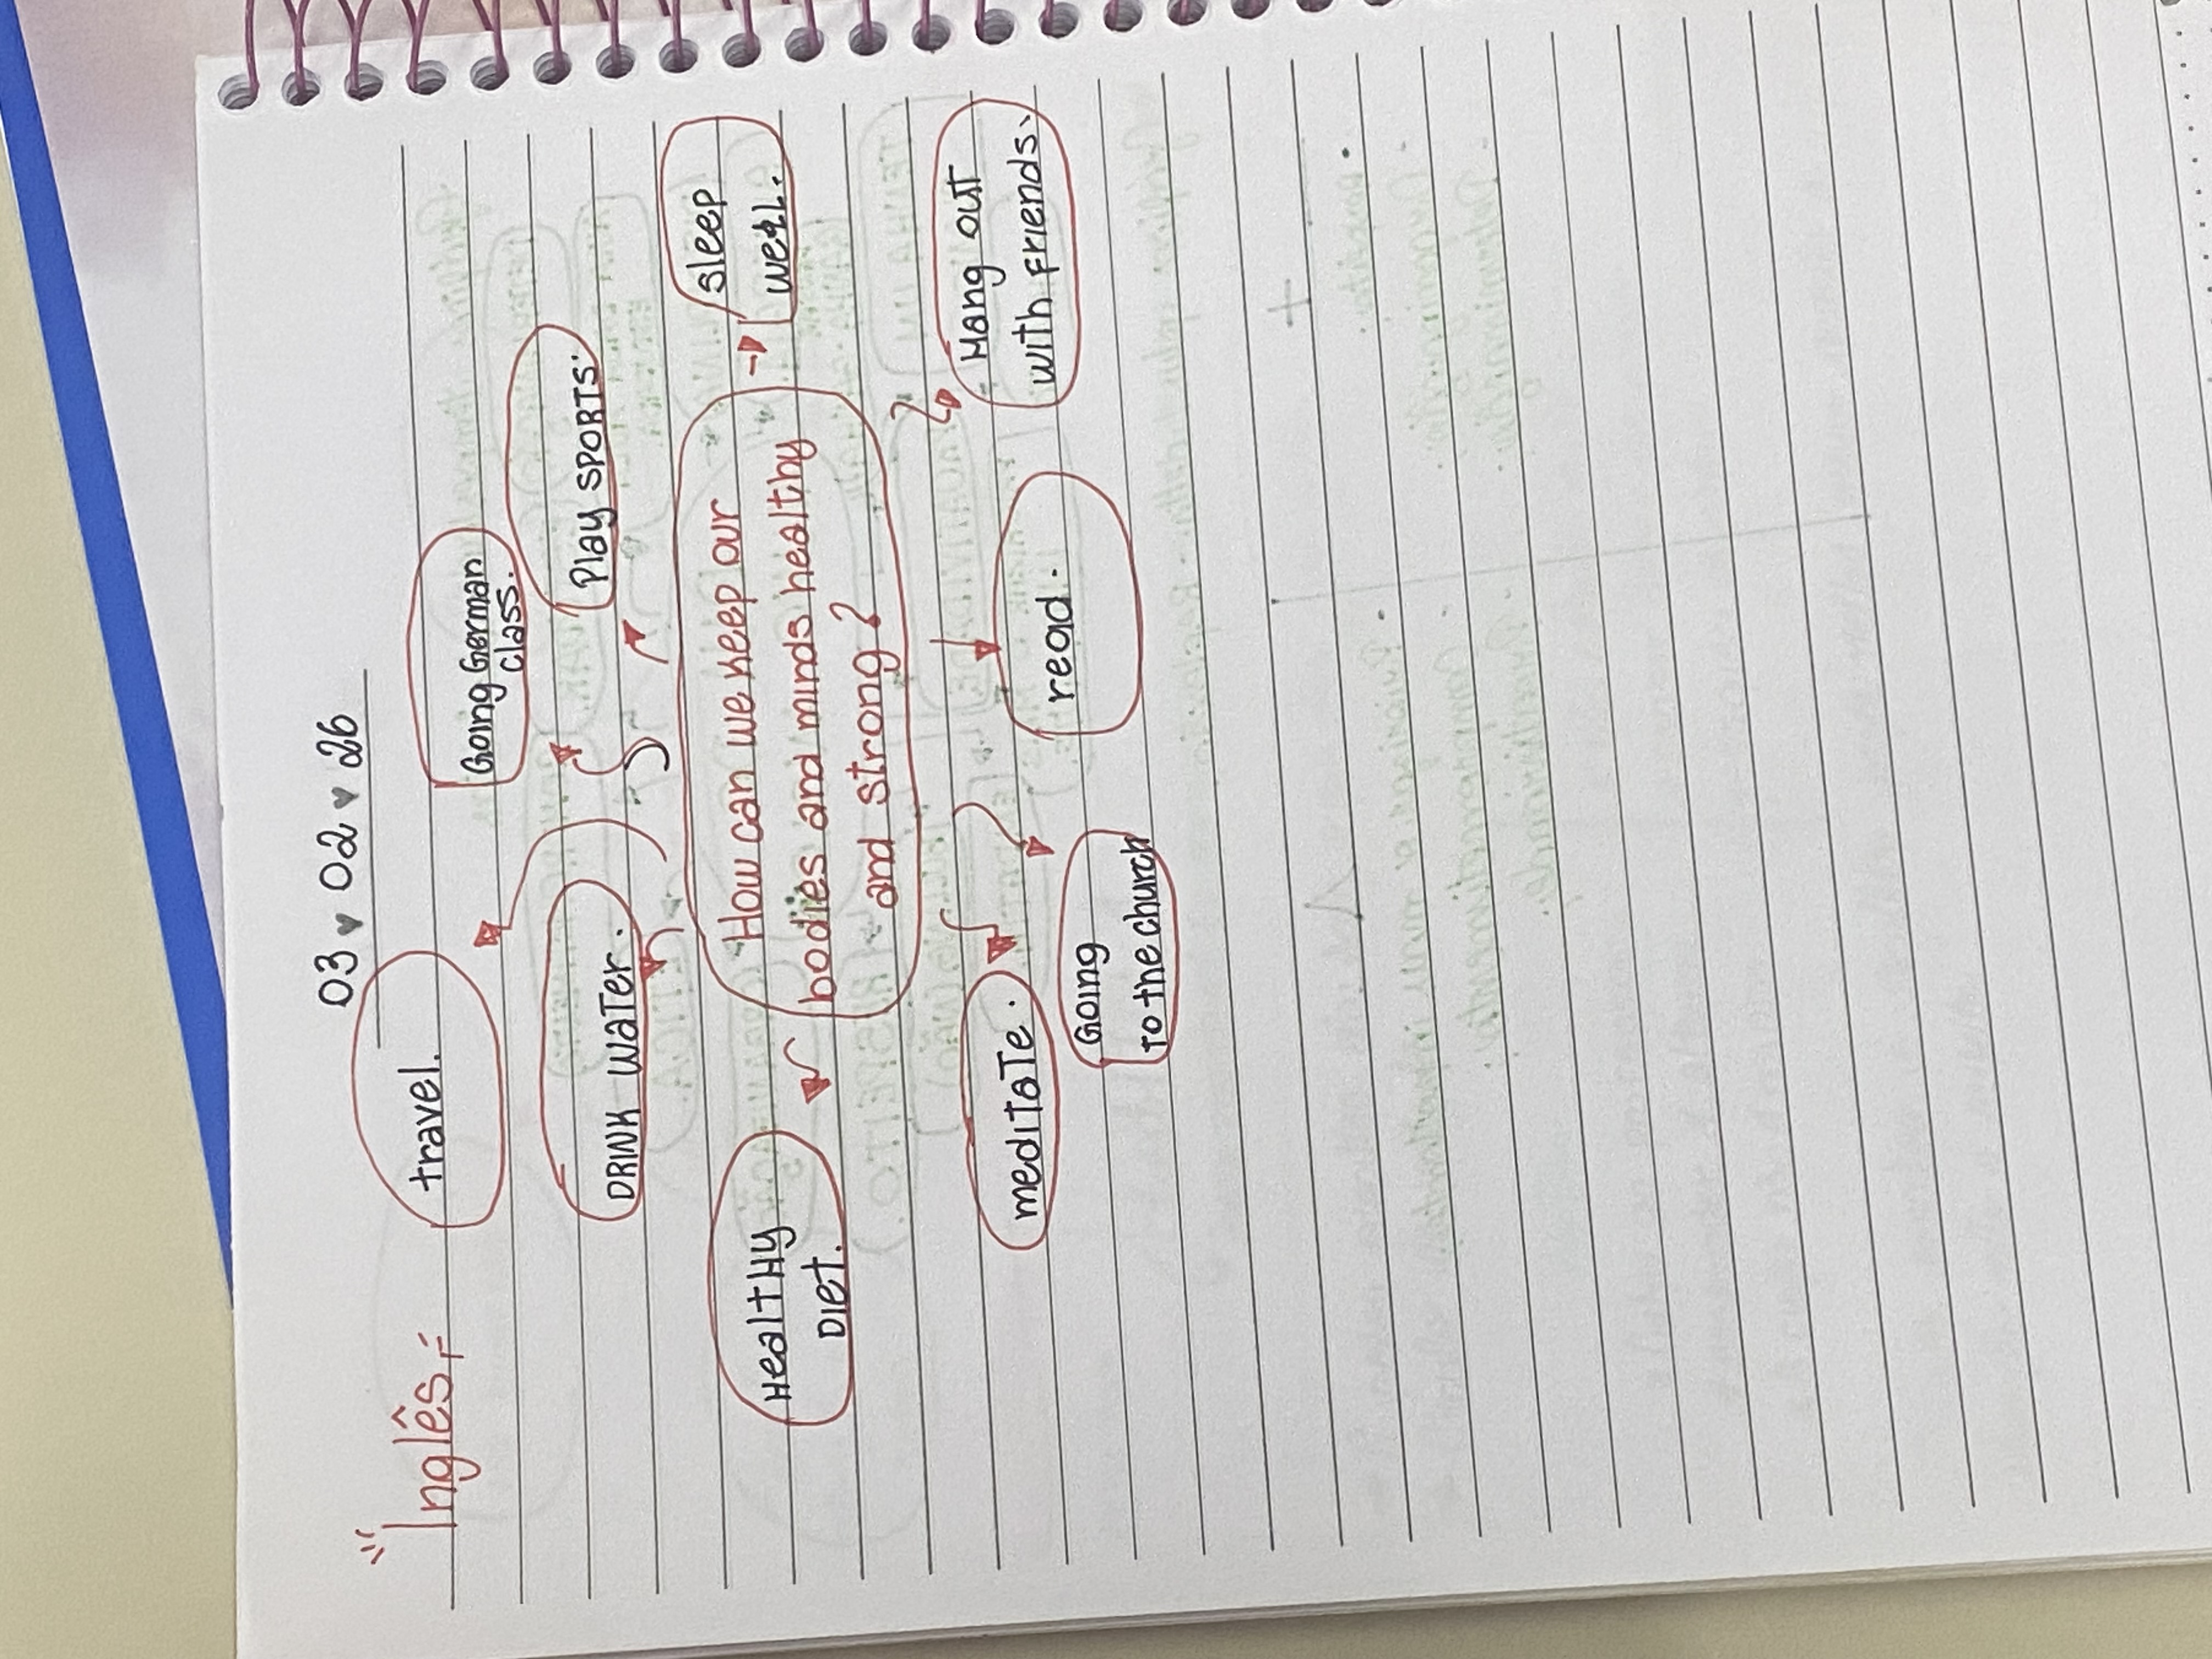 03 ♥ 02 ♥ 26
Inglês
travel.
Going German
class.
DRINK WATER.
Play SPORTS.
Healthy
Diet.
How can we keep our
bodies and minds healthy
and strong?
sleep
well.
meditate.
read.
Hang out
with friends.
Going
To the church